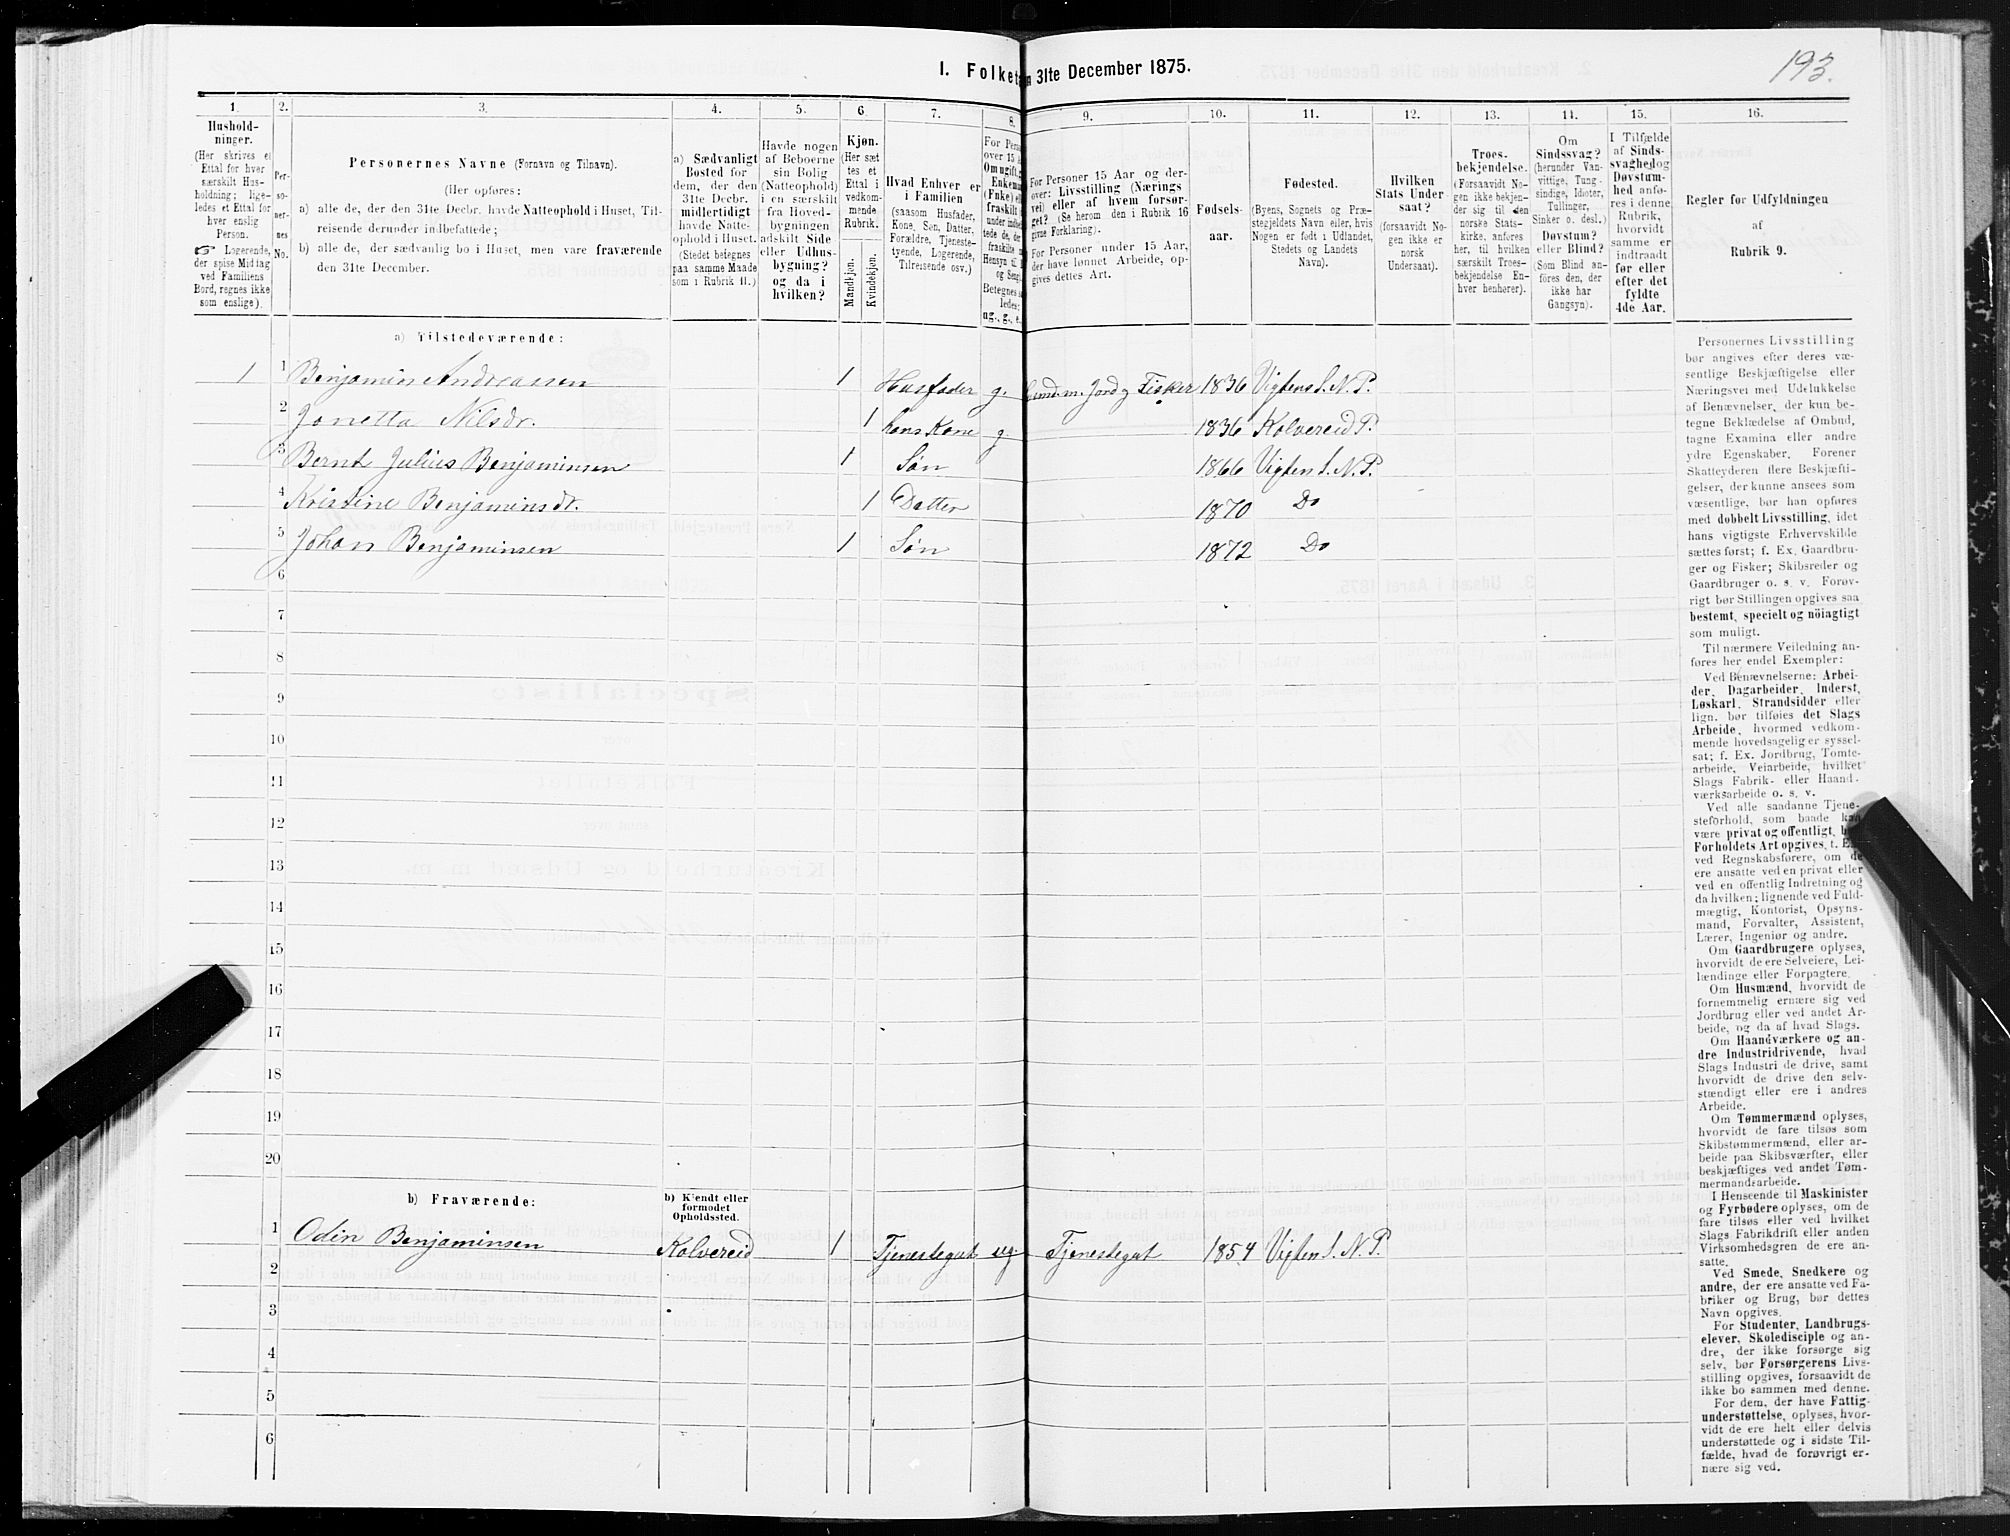 193.
I. Folketa
n 31te December 1875.
1.
2.
3.
4.
5.
6.
7.
8.
9.
10.
11.
12.
13.
14.
15.
16.
Hushold-
ninger.
(Her skrives et
Ettal for hver
særskilt Hus-
holdning; lige-
ledes et Ettal for
hver enslig
Person.
☞ Logerende,
der spise Middag
ved Familiens
Bord, regnes ikke
som enslige).
Per-
so-
ner-
nes
No.
Personernes Navne (Fornavn og Tilnavn).
(Her opføres:
a) alle de, der den 31te Decbr. havde Natteophold i Huset, Til-
reisende derunder indbefattede;
b) alle de, der sædvanlig bo i Huset, men vare fraværende
den 31te December.
a) Sædvanligt
Bosted for
dem, der den
31te Decbr.
midlertidigt
havde Natte-
ophold i Huset.
(Stedet betegnes
paa samme Maade
som i Rubrik 11.)
Havde nogen
af Beboerne
sin Bolig
(Natteophold)
i en særskilt
fra Hoved-
bygningen
adskilt Side
eller Udhus-
bygning?
og da i
hvilken?
Kjøn.
(Her sæt-
tes et
Ettal i
vedkom-
mende
Rubrik.
Mandkjøn.
Kvindekjøn.
Hvad Enhver er
i Familien
(saasom Husfader,
Kone, Søn, Datter,
Forældre, Tjeneste-
tyende, Logerende,
Tilreisende osv.)
For Pers
over 15
Om ugift,
Enkema
(Fnke)
fraskilt
under indbe
tede de, de
fraskilte
Hensyn til
og Seng
Betegnes
ledes:
ug., g., e.,
For Personer 15 Aar og der-
over: Livsstilling (Nærings
vei) eller af hvem forsør-
get? (Se herom den i Rubrik 16
givne Forklaring).
For Personer under 15 Aar,
der have lønnet Arbeide, op-
gives dettes Art.
Fødsels-
aar.
Fødested.
(Byens, Sognets og Præ-
stegjeldets Navn eller, hvis
Nogen er født i Udlandet,
Stedets og Landets
Navn).
Hvilken
Stats Under
saat?
(forsaavidt No-
gen ikke er
norsk
Undersaat).
Troes-
bekjendelse.
(Forsaavidt No-
gen ikke bekjen-
der sig til den
norske Stats-
kirke, anføres
her, til hvilken
særskilt Troes-
bekjendelse En-
hver henhører).
Om
Sindssvag?
(herunder Van-
vittige, Tung-
sindige, Idioter,
Tullinger,
Sinker o. desl.)
Døvstum?
eller Blind?
(Som Blind an-
føres den, der
ikke har
Gangsyn).
I Tilfælde
af Sinds-
svaghed og
Døvstum-
hed anfø-
res i denne
Rubrik,
hvorvidt
samme er
indtraadt
før eller
efter det
fyldte
4de Aar.
Regler for Udfyldningen
af
Rubrik 9.
a) Tilstedeværende:
1 1 Benjamin Andreassen 1 Husfader g. Husm. m. Jord og Fisker 1836 Vigten S. N. P.
2 Jonetta Nilsdr. 1 hans Kone g 1836 Kolvereid P.
3 Bernt Julius Benjaminsen 1 Søn 1866 Vigten S. N. P.
4 Kristine Benjaminsdr. 1 Datter 1870 Do
5 Johan Benjaminsen 1 Søn 1872 Do
6
7
8
9
10
11
12
13
14
15
16
17
18
19
20
b) Fraværende:
b) Kjendt eller
formodet
Opholdssted.
1 Odin Benjaminsen Kolvereid 1 Tjenestegut ug. Tjenestegut 1854 Vigten S. N. P.
2
3
4
5
6
Personernes Livsstilling
bør angives efter deres væ-
sentlige Beskjæftigelse eller
Næringsvei med Udelukkelse
af Benævnelser, der kun be-
tegne Beklædelse af Ombud,
tagne Examina eller andre
ydre Egenskaber. Forener
Skatteyderen flere Beskjæfti-
gelser, der kunne ansees som
væsentlige, bør han opføres
med dobbelt Livsstilling, idet
hans vigtigste Erhvervskilde
sættes først; f. Ex. Gaardbru-
ger og Fisker; Skibsreder og
Gaardbruger o. s. v. Forøv-
rigt bør Stillingen opgives saa
bestemt, specielt og nöiagtigt
som muligt.
Til nærmere Veiledning an-
føres her endel Exempler:
Ved Benævnelserne: Arbei-
der, Dagarbeider, Inderst,
Løskarl, Strandsidder eller
lign. bør tilføies det Slags
Arbeide, hvormed vedkom-
mende hovedsagelig er syssel-
sat; f. Ex. Jordbrug, Tomte-
arbeide, Veiarbeide, hvilket
Slags Fabrik- eller Haand-
værksarbeide o. s. v.
Ved alle saadanne Tjene-
steforhold, som baade kan
være privat og offentligt, bør
Forholdets Art opgives, t. Ex.
ved Regnskabsførere, om de
ere ansatte ved en privat eller
ved en offentlig Indretning og
da hvilken; lignende ved Fuld-
mægtig, Kontorist, Opsyns-
mand, Forvalter, Assistent,
Lærer, Ingeniør og andre.
Om Gaardbrugere oplyses,
hvorvidt de ere Selveiere, Lei-
lændinge eller Forpagtere.
Om Husmænd, hvorvidt de
fornemmelig ernære sig ved
Jordbrug eller ved andet Ar-
beide, og da af hvad Slags.
Om Haandværkere og an-
dre Industridrivende, hvad
Slags Industri de drive, samt
hvorvidt de drive den selv-
stændigt eller ere i andres
Arbeide.
Om Tømmermænd oplyses,
hvorvidt de fare tilsøs som
Skibstømmermænd, eller ar-
beide paa Skibsværfter, eller
beskjæftiges ved andet Tøm-
mermandsarbeide.
I Henseende til Maskinister
og Fyrbødere oplyses, om de
fare tilsøs eller ved hvilket
Slags Fabrikdrift eller anden
Virksomhedsgren de ere an-
satte.
Ved Smede, Snedkere og
andre, der ere ansatte ved Fa-
briker og Brug, bør dettes
Navn opgives.
For Studenter, Landbrugs-
elever, Skoledisciple og an-
dre, der ikke forsørge sig
selv, bør Forsørgerens Livs-
stilling opgives, forsaavidt de
ikke bo sammen med denne.
For dem, der have Fattig-
understøttelse, oplyses, hvor-
vidt de ere helt eller delvis
understøttede og i sidste Til-
fælde, hvad de forøvrigt er-
nære sig ved.